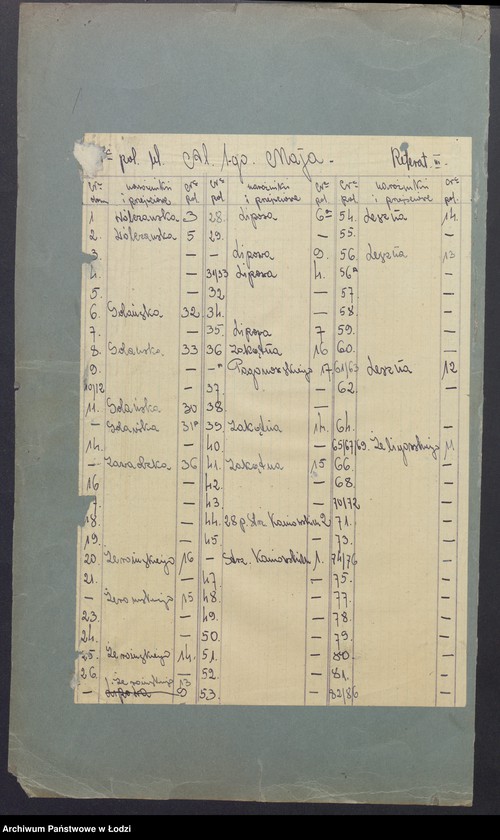 № pol. ul. Al. 1-go. Maja. Referat III.
№ dom narożniki i przejazdowe № pol. № pol. narożniki i przejazdowe № pol. № pol. narożniki i przejazdowe № pol.
1 Wólczańska 3 28. Lipowa 6a 54. Leszna 14.
2. Wólczańska 5 29. — 55. —
3. — — Lipowa 9. 56 Leszna 13
4. — 31/33 Lipowa 4. 56a —
5. — 32 — 57 —
6. Gdańska 32 34. — 58. —
7. — 35. Lipowa 7 59. —
8. Gdańska 33 36 Zakątna 16 60. —
9. — —" 17 61/63 Leszna 12
10/12 — 37. — 62. —
11. Gdańska 30 38 —
— Gdańska 31a 39 Zakątna 14. 64. —
14. — 40. 65/67/69. Żeligowskiego 11.
— Zawadzka 36 41. Zakątna 15 66. —
16 — 42. — 68. —
7. — 43. — 70/72 —
18. — 44. 28 p. Strz. Kaniowskich 2 71. —
19. — 45. — 73. —
20. Żeromskiego 16 — Strz. Kaniowskich 1. 74/76 —
21. — 47. — 75. —
— Żeromskiego 15 48. — 77. —
23. — 49. — 78. —
24. — 50. — 79. —
25. Żeromskiego 14. 51. — 80. —
26. — 52. — 81. —
— Żeromskiego 13 53. — 82/86 —
Archiwum Państwowe w Łodzi